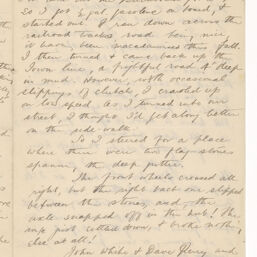 So I got a gal. gasoline on board, &
started out. I ran down across the
railroad tracks road being nice
it having been macadamized this fall.
I then turned & came back up the
Town line, a frightful road & deep
in mud. However, with occasional
slippings of clutch, I crawled up
on low speed. As I turned into our
street, I thought I'd get along better
on the side walk.
So I steered for a place
where there were two flag stones
spanning the deep gutter.
The front wheels crossed all
right, but the right back one slipped
between the stones, and the
axle snapped off in the hub! The
just settled down, & broke nothing
else at all!
John White & Dave Perry and